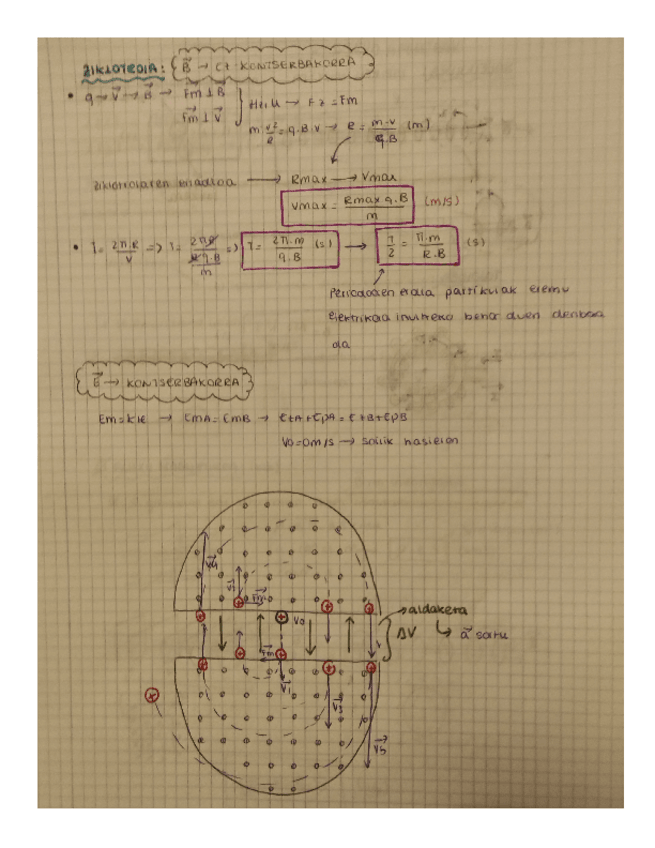 ZIKLOTROIA: B⃗ → Ct. KONTSERBAKORRA
• q → V⃗ → B⃗ → F⃗m ⊥ B⃗
F⃗m ⊥ V⃗
H.Z.K.U → Fz = Fm
m v²/R = q.B.v → R = m.v/q.B (m)
Ziklotroiaren erradioa → Rmax → Vmax
Vmax = Rmax q.B/m (m/s)
• T = 2π.R/V => T = 2πR/R q.B/m => T = 2π.m/q.B (s) → T/2 = π.m/R.B (s)
Periodoaren erdia partikulak eremu
elektrikoa invitreko behar duen denbora
da
E⃗ → KONTSERBAKORRA
Em = kte → EmA = EmB → EtA + EpA = EtB + EpB
V0 = 0 m/s → soilik hasieran
V⃗4
F⃗m
V0
→ aldakera
ΔV
→ a⃗ sortu
F⃗m
V⃗1
V⃗3
V⃗5